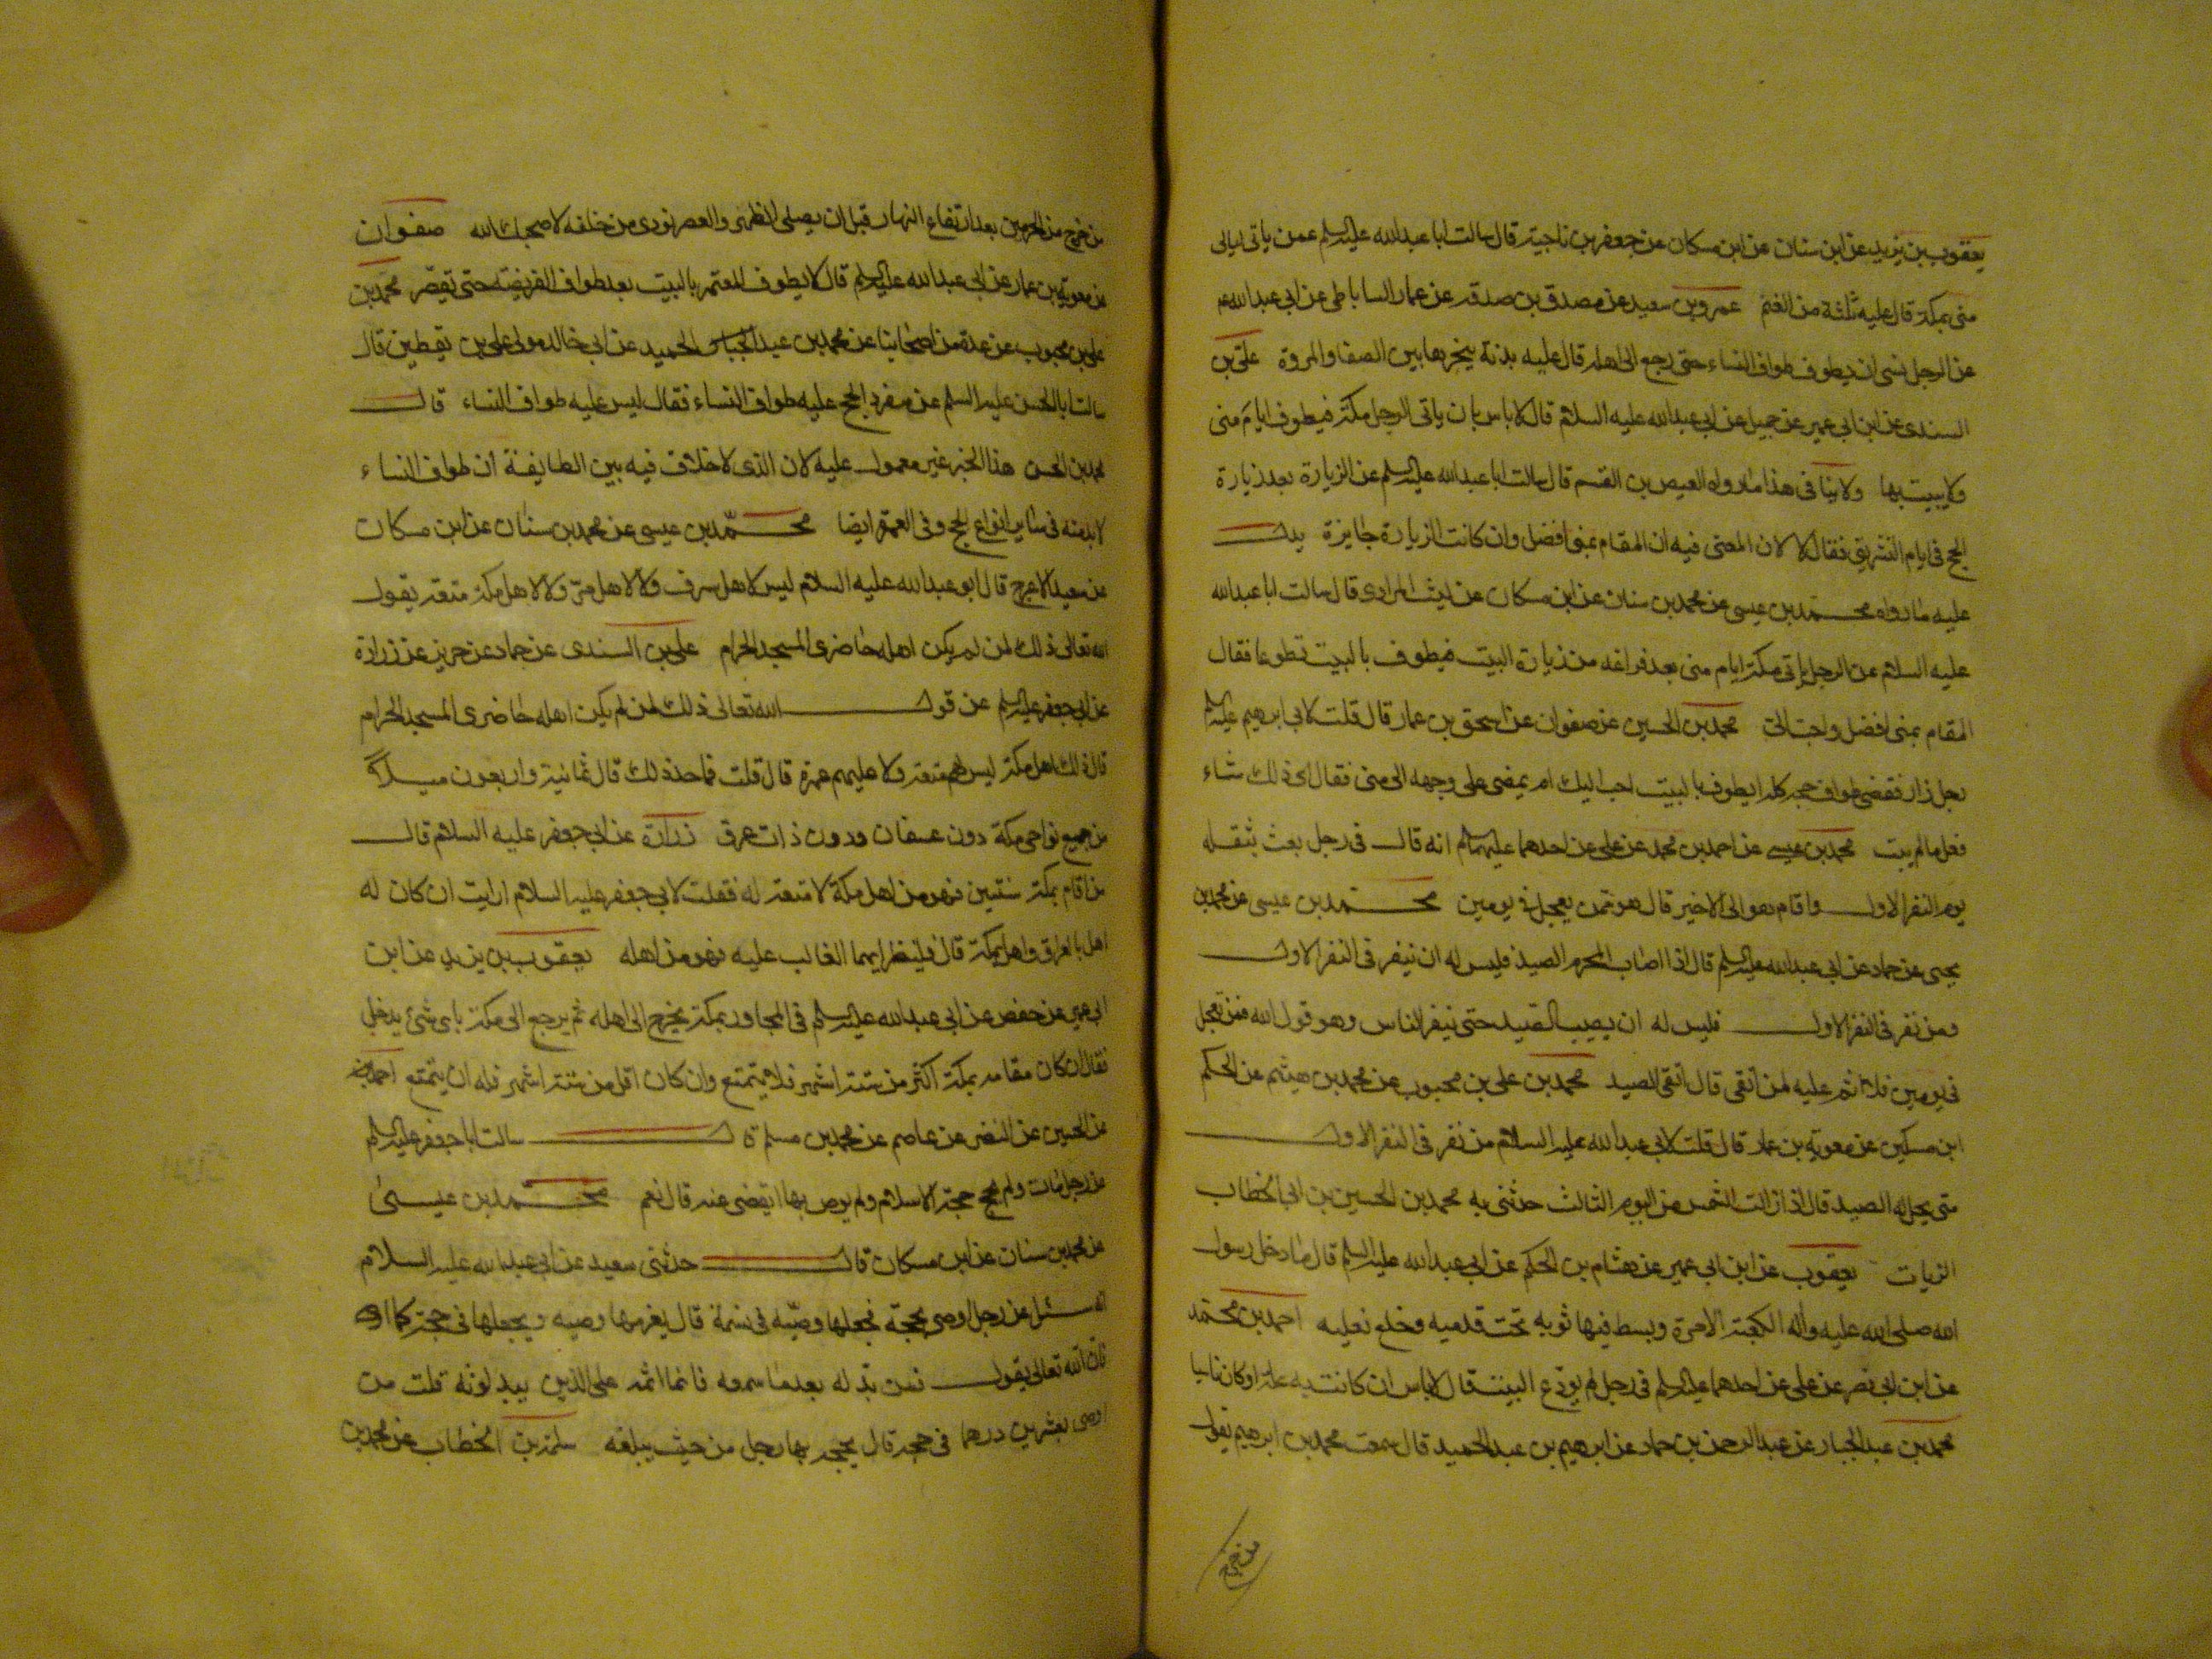 يعقوب بن يزيد عن ابن سنان عن ابن مسكان عن جعفر بن ناجية قال سالت ابا عبدالله عليه السلم عمن ياتى ليالى
منى بمكة قال عليه ثلثة من الغنم عمرو بن سعيد عن مصدق بن صدقه عن عمار الساباطى عن ابى عبدالله ع
عن الرجل نسى ان يطوف طواف النساء حتى رجع الى اهله قال عليه بدنة ينحرها بين الصفا والمروة على بن
السندى عن ابن ابى عمير عن جميل عن ابى عبدالله عليه السلام قال لا باس بان ياتى الرجل مكة فيطوف ايام منى
ولا يبيت بها ولا ينافى هذا ما رواه العيص بن القسم قال سالت ابا عبدالله عليه السلم عن الزيارة بعد زيارة
الحج فى ايام التشريق فقال لا لان المعنى فيه ان المقام بمنى افضل وان كانت الزيارة جايزة يدل
عليه ما رواه محمد بن عيسى عن محمد بن سنان عن ابن مسكان عن ليث المرادى قال سالت ابا عبدالله
عليه السلام عن الرجل ياتى مكة ايام منى بعد فراغه من زيارة البيت فيطوف بالبيت تطوعا فقال
المقام بمنى افضل واحب الى محمد بن الحسين عن صفوان عن اسحق بن عمار قال قلت لابى ابرهيم عليه السلم
رجل زار فقضى طواف حجه كله ايطوف بالبيت احب اليك ام يمضى على وجهه الى منى فقال اى ذلك شاء
فعل ما لم يبت محمد بن عيسى عن احمد بن محمد عن على عن احدهما عليهما السلم انه قال فى رجل بعث بثقله
يوم النفر الاول واقام هو الى الاخير قال هو ممن يعجل فى يومين محمد بن عيسى عن محمد بن
يحيى عن حماد عن ابى عبدالله عليه السلم قال اذا اصاب المحرم الصيد فليس له ان ينفر فى النفر الاول
ومن نفر فى النفر الاول فليس له ان يصيب الصيد حتى ينفر الناس وهو قول الله فمن تعجل
فى يومين فلا اثم عليه لمن اتقى قال اتقى الصيد محمد بن على بن محبوب عن محمد بن هيثم عن الحكم
ابن مسكين عن معوية بن عمار قال قلت لابى عبدالله عليه السلام من نفر فى النفر الاول
متى يحل له الصيد قال اذا زالت الشمس من اليوم الثالث حدثنى به محمد بن الحسين بن ابى الخطاب
الزيات يعقوب عن ابن ابى عمير عن هشام بن الحكم عن ابى عبدالله عليه السلم قال ما دخل رسول
الله صلى الله عليه واله الكعبة الا مرة وبسط فيها ثوبه تحت قدميه وخلع نعليه احمد بن محمد
عن ابن ابى نصر عن على عن احدهما عليه السلم فى رجل لم يودع البيت قال لا باس ان كانت به علة او كان ناسيا
محمد بن عبد الجبار عن عبد الرحمن بن حماد عن ابرهيم بن عبد الحميد قال سمعت محمد بن ابرهيم يقول
من خرج
من خرج من الحرمين بعد ارتفاع النهار قبل ان يصلى الظهر والعصر نودى من خلفه لا صحبك الله صفوان
عن معوية بن عمار عن ابى عبدالله عليه السلم قال لا يطوف المعتمر بالبيت بعد طواف الفريضه حتى تقصر محمد بن
على بن محبوب عن عدة من اصحابنا عن محمد بن عبد الحميد عن ابى خالد مولى على بن يقطين قال
سالت ابا الحسن عليه السلم عن مفرد الحج عليه طواف النساء فقال ليس عليه طواف النساء قال
محمد بن الحسن هذا الخبر غير معمول عليه لان الذى لا خلاف فيه بين الطايفة ان طواف النساء
لا بد منه فى ساير انواع الحج وفى العمرة ايضا محمد بن عيسى عن محمد بن سنان عن ابن مسكان
عن سعيد الاعرج قال ابو عبدالله عليه السلام ليس لاهل سرف ولا لاهل مر ولا لاهل مكة متعة يقول
الله تعالى ذلك لمن لم يكن اهله حاضرى المسجد الحرام على بن السندى عن حماد عن حريز عن زرارة
عن ابى جعفر عليه السلم عن قول الله تعالى ذلك لمن لم يكن اهله حاضرى المسجد الحرام
قال ذلك اهل مكة ليس لهم متعة ولا عليهم عمرة قال قلت فما حد ذلك قال ثمانية واربعون ميلا
من جميع نواحى مكة دون عسفان ودون ذات عرق زرارة عن ابى جعفر عليه السلام قال
من اقام بمكة سنتين فهو من اهل مكة لا متعة له فقلت لابى جعفر عليه السلام ارايت ان كان له
اهل بالعراق واهل بمكة قال فلينظر ايهما الغالب عليه فهو من اهله يعقوب بن يزيد عن ابن
ابى عمير عن حفص عن ابى عبدالله عليه السلم فى المجاور بمكة يخرج الى اهله ثم يرجع الى مكة باى شئ يدخل
فقال ان كان مقامه بمكة اكثر من ستة اشهر فلا يتمتع وان كان اقل من ستة اشهر فله ان يتمتع احمد
عن الحسين عن النضر عن عاصم عن محمد بن مسلم قال سالت ابا جعفر عليه السلم
عن رجل مات ولم يحج حجة الاسلام ولم يوص بها ايقضى عنه قال نعم محمد بن عيسى
عن محمد بن سنان عن ابن مسكان قال حدثنى سعيد عن ابى عبدالله عليه السلام
انه سئل عن رجل اوصى بحجة فجعلها وصيه فى نسمة قال يغرمها وصيه ويجعلها فى حجة كما اوصى
فان الله تعالى يقول فمن بدله بعد ما سمعه فانما اثمه على الذين يبدلونه قلت من
اوصى بعشرين درهما فى حجة قال يحج بها رجل من حيث يبلغه سلمة بن الخطاب عن محمد بن